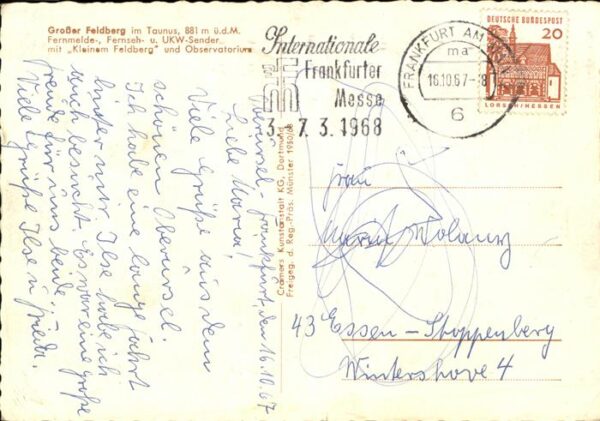 Großer Feldberg im Taunus, 881 m ü.d.M.
Fernmelde-, Fernseh- u. UKW-Sender
mit „Kleinem Feldberg" und Observatorium
Internationale
Frankfurter
Messe
3.-7.3.1968
FRANKFURT AM MAIN
ma
16.10.67-18
6
DEUTSCHE BUNDESPOST
20
LORSCH/HESSEN
Oberursel-Frankfurt, den 16.10.67
Liebe Maria!
Viele Grüße aus dem
schönen Oberursel.
Ich habe eine lange Fahrt
hinter mir. Ilse habe ich
auch besucht. Es war eine große
Freude für uns beide.
Viele Grüße Ilse u. Frieda.
Cramers Kunstanstalt KG, Dortmund
Freigeg. d. Reg.-Präs. Münster
Frau
43 Essen-Stoppenberg
Wintershove 4